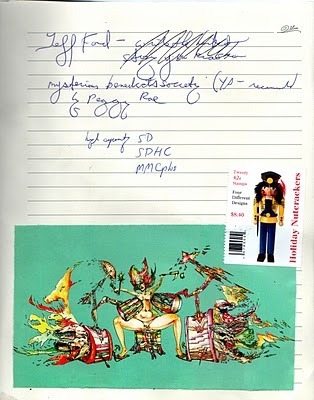 Jeff Ford -
mysterious benedict society (YA - recommended
by Peggy Rae
high capacity SD
SDHC
MMCplus
Twenty
42¢
Stamps
Four
Different
Designs
$8.40
Holiday Nutcrackers